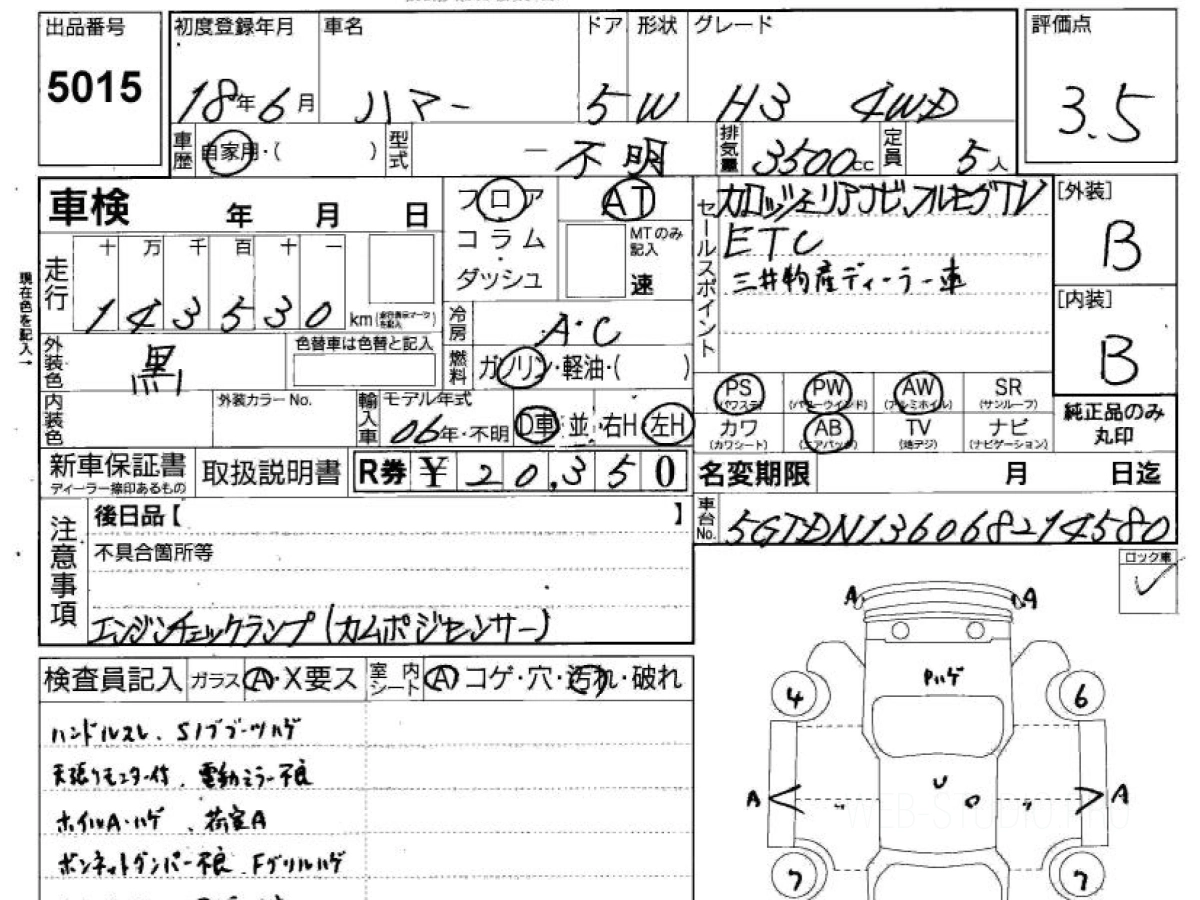 出品番号
5015
初度登録年月 車名 ドア 形状 グレード
18年6月 ハマー 5 W H3 4WD
評価点
3.5
車歴 自家用・( ) 型式 ー 不明 排気量 3500cc 定員 5人
車検 年 月 日
フロア AT
コラム・ MTのみ記入
ダッシュ 速
現在色を記入→
走行 十 万 千 百 十 一
143530 km
冷房 A・C
外装色 黒 色替車は色替と記入
燃料 ガソリン・軽油・( )
内装色 外装カラーNo. 輸入車 モデル年式
06年・不明 D車 並 右H 左H
セールスポイント
カロッツェリアナビ、フルセグTV
ETC
三井物産ディーラー車
[外装]
B
[内装]
B
純正品のみ丸印
PS PW AW SR
(パワステ) (パワーウインド) (アルミホイル) (サンルーフ)
カワ AB TV ナビ
(カワシート) (エアバッグ) (地デジ) (ナビゲーション)
新車保証書 取扱説明書 R券 ¥ 20,350
ディーラー捺印あるもの
名変期限 月 日迄
車台No. 5GTDN136068214580
注意事項
後日品【 】
不具合箇所等
エンジンチェックランプ(カムポジセンサー)
ロック車
検査員記入 ガラス A・X要ス 室内シート A コゲ・穴・汚れ・破れ
ハンドルスレ、Sノブブーツハゲ
天張りモニター付、電動ミラー不良
ホイルA・ハゲ、荷室A
ボンネットダンパー不良、Fグリルハゲ
A A
Pハゲ
4 6
A A
7 7
WEB-STUDIO.PRO